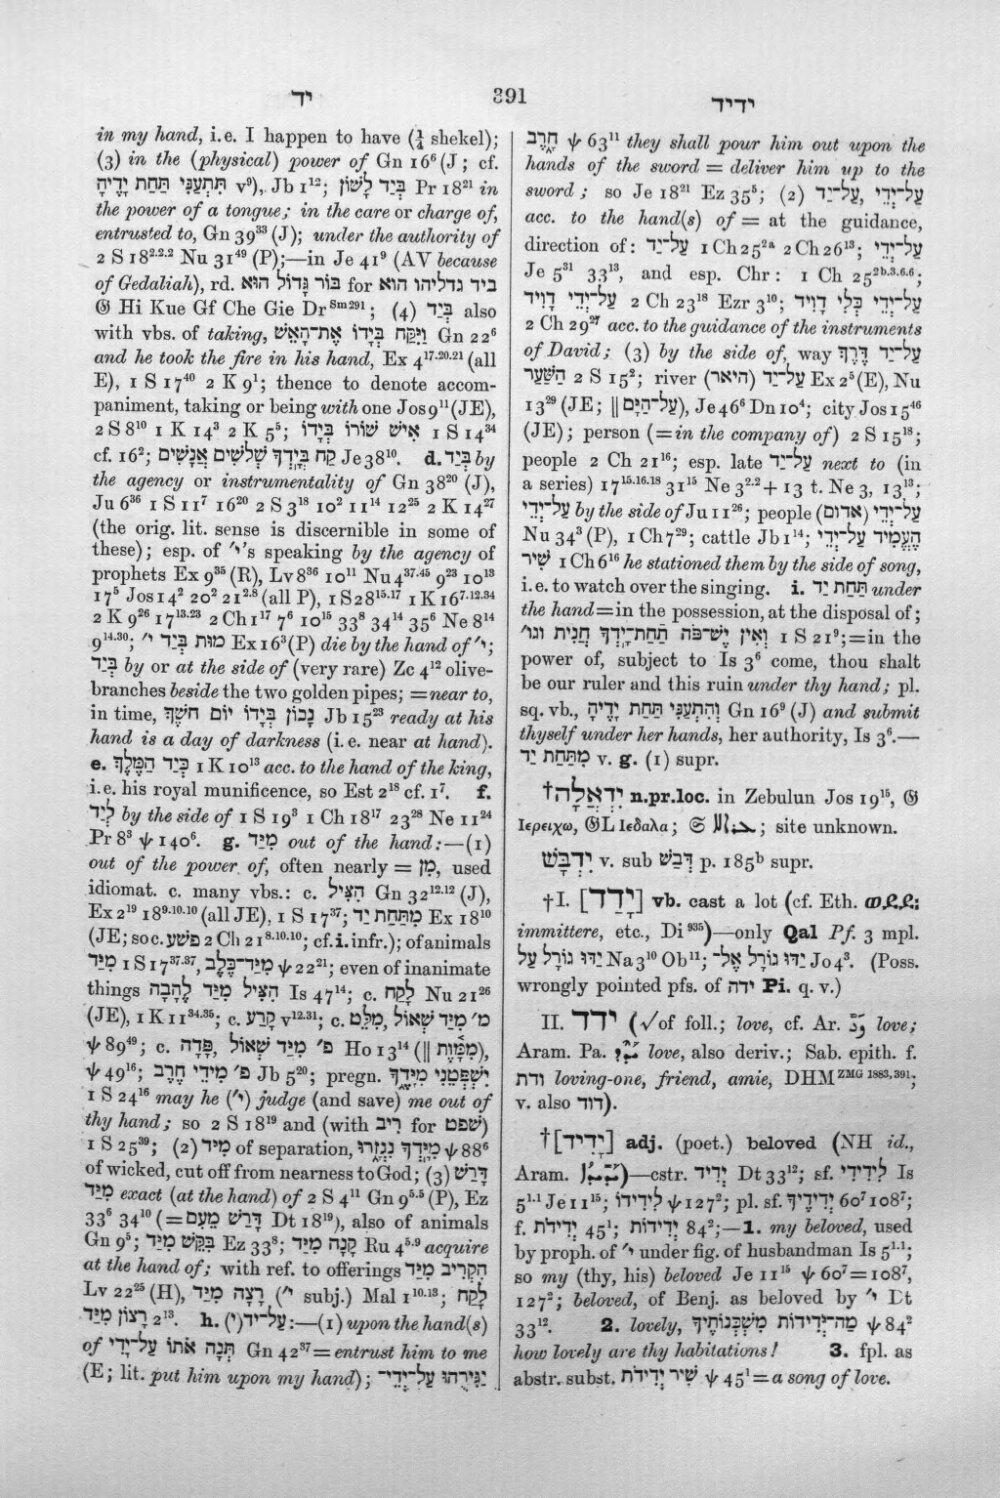 יד
391
ידיד
in my hand, i.e. I happen to have (¼ shekel);
(3) in the (physical) power of Gn 16⁶ (J; cf.
תִּתְעַנִּי תַּחַת יָדֶיהָ v⁹), Jb 1¹²; בְּיַד לָשׁוֹן Pr 18²¹ in
the power of a tongue; in the care or charge of,
entrusted to, Gn 39³³ (J); under the authority of
2 S 18²·²·² Nu 31⁴⁹ (P);—in Je 41⁹ (AV because
of Gedaliah), rd. בּוֹר גָּדוֹל הוּא for ביד גדליהו הוא
𝔊 Hi Kue Gf Che Gie Dr ˢᵐ²⁹¹; (4) בְּיַד also
with vbs. of taking, וַיִּקַּח בְּיָדוֹ אֶת־הָאֵשׁ Gn 22⁶
and he took the fire in his hand, Ex 4¹⁷·²⁰·²¹ (all
E), 1 S 17⁴⁰ 2 K 9¹; thence to denote accom-
paniment, taking or being with one Jos 9¹¹ (JE),
2 S 8¹⁰ 1 K 14³ 2 K 5⁵; אִישׁ שׁוֹרוֹ בְּיָדוֹ 1 S 14³⁴
cf. 16²; קַח בְּיָדְךָ שְׁלשִׁים אֲנָשִׁים Je 38¹⁰. d. בְּיַד by
the agency or instrumentality of Gn 38²⁰ (J),
Ju 6³⁶ 1 S 11⁷ 16²⁰ 2 S 3¹⁸ 10² 11¹⁴ 12²⁵ 2 K 14²⁷
(the orig. lit. sense is discernible in some of
these); esp. of י״'s speaking by the agency of
prophets Ex 9³⁵ (R), Lv 8³⁶ 10¹¹ Nu 4³⁷·⁴⁵ 9²³ 10¹³
17⁵ Jos 14² 20² 21²·⁸ (all P), 1 S 28¹⁵·¹⁷ 1 K 16⁷·¹²·³⁴
2 K 9²⁶ 17¹³·²³ 2 Ch 1¹⁷ 7⁶ 10¹⁵ 33⁸ 34¹⁴ 35⁶ Ne 8¹⁴
9¹⁴·³⁰; מוּת בְּיַד י״ Ex 16³ (P) die by the hand of י״;
בְּיַד by or at the side of (very rare) Zc 4¹² olive-
branches beside the two golden pipes; =near to,
in time, נָכוֹן בְּיָדוֹ יוֹם חשֶׁךְ Jb 15²³ ready at his
hand is a day of darkness (i.e. near at hand).
e. כְּיַד הַמֶּלֶךְ 1 K 10¹³ acc. to the hand of the king,
i.e. his royal munificence, so Est 2¹⁸ cf. 1⁷. f.
לְיַד by the side of 1 S 19³ 1 Ch 18¹⁷ 23²⁸ Ne 11²⁴
Pr 8³ ψ 140⁶. g. מִיַּד out of the hand:—(1)
out of the power of, often nearly = מִן, used
idiomat. c. many vbs.: c. הִצִּיל Gn 32¹²·¹² (J),
Ex 2¹⁹ 18⁹·¹⁰·¹⁰ (all JE), 1 S 17³⁷; מִתַּחַת יַד Ex 18¹⁰
(JE; so c. פשע 2 Ch 21⁸·¹⁰·¹⁰; cf. i. infr.); of animals
מִיַּד 1 S 17³⁷·³⁷, מִיַּד־כֶּלֶב ψ 22²¹; even of inanimate
things הִצִּיל מִיַּד לֶהָבָה Is 47¹⁴; c. לָקַח Nu 21²⁶
(JE), 1 K 11³⁴·³⁵; c. קָרַע v¹²·³¹; c. מִלֵּט, מ׳ מִיַּד שְׁאוֹל
ψ 89⁴⁹; c. פָּדָה, פ׳ מִיַּד שְׁאוֹל Ho 13¹⁴ (‖ מִמָּוֶת),
ψ 49¹⁶; פ׳ מִידֵי חָרֶב Jb 5²⁰; pregn. יִשְׁפְּטֵנִי מִיָּדֶךָ
1 S 24¹⁶ may he (י״) judge (and save) me out of
thy hand; so 2 S 18¹⁹ and (with ריב for שפט)
1 S 25³⁹; (2) מִיַּד of separation, מִיָּדְךָ נִגְזָרוּ ψ 88⁶
of wicked, cut off from nearness to God; (3) דָּרַשׁ
מִיַּד exact (at the hand) of 2 S 4¹¹ Gn 9⁵·⁵ (P), Ez
33⁶ 34¹⁰ (= דָּרַשׁ מֵעִם Dt 18¹⁹), also of animals
Gn 9⁵; בִּקֵּשׁ מִיַּד Ez 33⁸; קָנָה מִיַּד Ru 4⁵·⁹ acquire
at the hand of; with ref. to offerings הִקְרִיב מִיַּד
Lv 22²⁵ (H), רָצָה מִיַּד (י״ subj.) Mal 1¹⁰·¹³; לָקַח
רָצוֹן מִיַּד 2¹³. h. עַל־יַד(י):—(1) upon the hand(s)
of תְּנָה אֹתוֹ עַל־יָדִי Gn 42³⁷ = entrust him to me
(E; lit. put him upon my hand); יַגִּירֻהוּ עַל־יְדֵי־
חָרֶב ψ 63¹¹ they shall pour him out upon the
hands of the sword = deliver him up to the
sword; so Je 18²¹ Ez 35⁵; (2) עַל־יְדֵי, עַל־יַד
acc. to the hand(s) of = at the guidance,
direction of: עַל־יַד 1 Ch 25²ᵃ 2 Ch 26¹³; עַל־יְדֵי
Je 5³¹ 33¹³, and esp. Chr: 1 Ch 25²ᵇ·³·⁶·⁶;
עַל־יְדֵי דָוִיד 2 Ch 23¹⁸ Ezr 3¹⁰; עַל־יְדֵי כְּלֵי דָוִיד
2 Ch 29²⁷ acc. to the guidance of the instruments
of David; (3) by the side of, way עַל־יַד דֶּרֶךְ
הַשַּׁעַר 2 S 15²; river עַל־יַד (היאר) Ex 2⁵ (E), Nu
13²⁹ (JE; ‖ עַל־הַיָּם), Je 46⁶ Dn 10⁴; city Jos 15⁴⁶
(JE); person (=in the company of) 2 S 15¹⁸;
people 2 Ch 21¹⁶; esp. late עַל־יַד next to (in
a series) 17¹⁵·¹⁶·¹⁸ 31¹⁵ Ne 3²·² + 13 t. Ne 3, 13¹³;
עַל־יְדֵי by the side of Ju 11²⁶; people עַל־יְדֵי (אדום)
Nu 34³ (P), 1 Ch 7²⁹; cattle Jb 1¹⁴; הֶעֱמִיד עַל־יְדֵי־
שִׁיר 1 Ch 6¹⁶ he stationed them by the side of song,
i.e. to watch over the singing. i. תַּחַת יַד under
the hand = in the possession, at the disposal of;
וְאִין יֶשׁ־פֹּה תַחַת־יָדְךָ חֲנִית וגו׳ 1 S 21⁹;=in the
power of, subject to Is 3⁶ come, thou shalt
be our ruler and this ruin under thy hand; pl.
sq. vb., וְהִתְעַנִּי תַּחַת יָדֶיהָ Gn 16⁹ (J) and submit
thyself under her hands, her authority, Is 3⁶.—
מִתַּחַת יַד v. g. (1) supr.
†יִדְאֲלָה n.pr.loc. in Zebulun Jos 19¹⁵, 𝔊
Ιερειχω, 𝔊L Ιεδαλα; 𝔖; site unknown.
יִדְבָּשׁ v. sub דְּבַשׁ p. 185ᵇ supr.
†I. [יָדַד] vb. cast a lot (cf. Eth. ወደደ:
immittere, etc., Di ⁹³⁵)—only Qal Pf. 3 mpl.
יַדּוּ גוֹרָל עַל Na 3¹⁰ Ob¹¹; יַדּוּ גוֹרָל אֶל־ Jo 4³. (Poss.
wrongly pointed pfs. of ידה Pi. q. v.)
II. ידד (√of foll.; love, cf. Ar. love;
Aram. Pa. love, also deriv.; Sab. epith. f.
ודת loving-one, friend, amie, DHM ᶻᴹᴳ ¹⁸⁸³,³⁹¹;
v. also דוד).
†[יָדִיד] adj. (poet.) beloved (NH id.,
Aram.)—cstr. יְדִיד Dt 33¹²; sf. לִידִידִי Is
5¹·¹ Je 11¹⁵; לִידִידוֹ ψ 127²; pl. sf. יְדִידֶיךָ 60⁷ 108⁷;
f. יְדִידֹת 45¹; יְדִידוֹת 84²;—1. my beloved, used
by proph. of י״ under fig. of husbandman Is 5¹·¹;
so my (thy, his) beloved Je 11¹⁵ ψ 60⁷=108⁷,
127²; beloved, of Benj. as beloved by י״ Dt
33¹². 2. lovely, מַה־יְּדִידוֹת מִשְׁכְּנוֹתֶיךָ ψ 84²
how lovely are thy habitations! 3. fpl. as
abstr. subst. שִׁיר יְדִידֹת ψ 45¹ = a song of love.